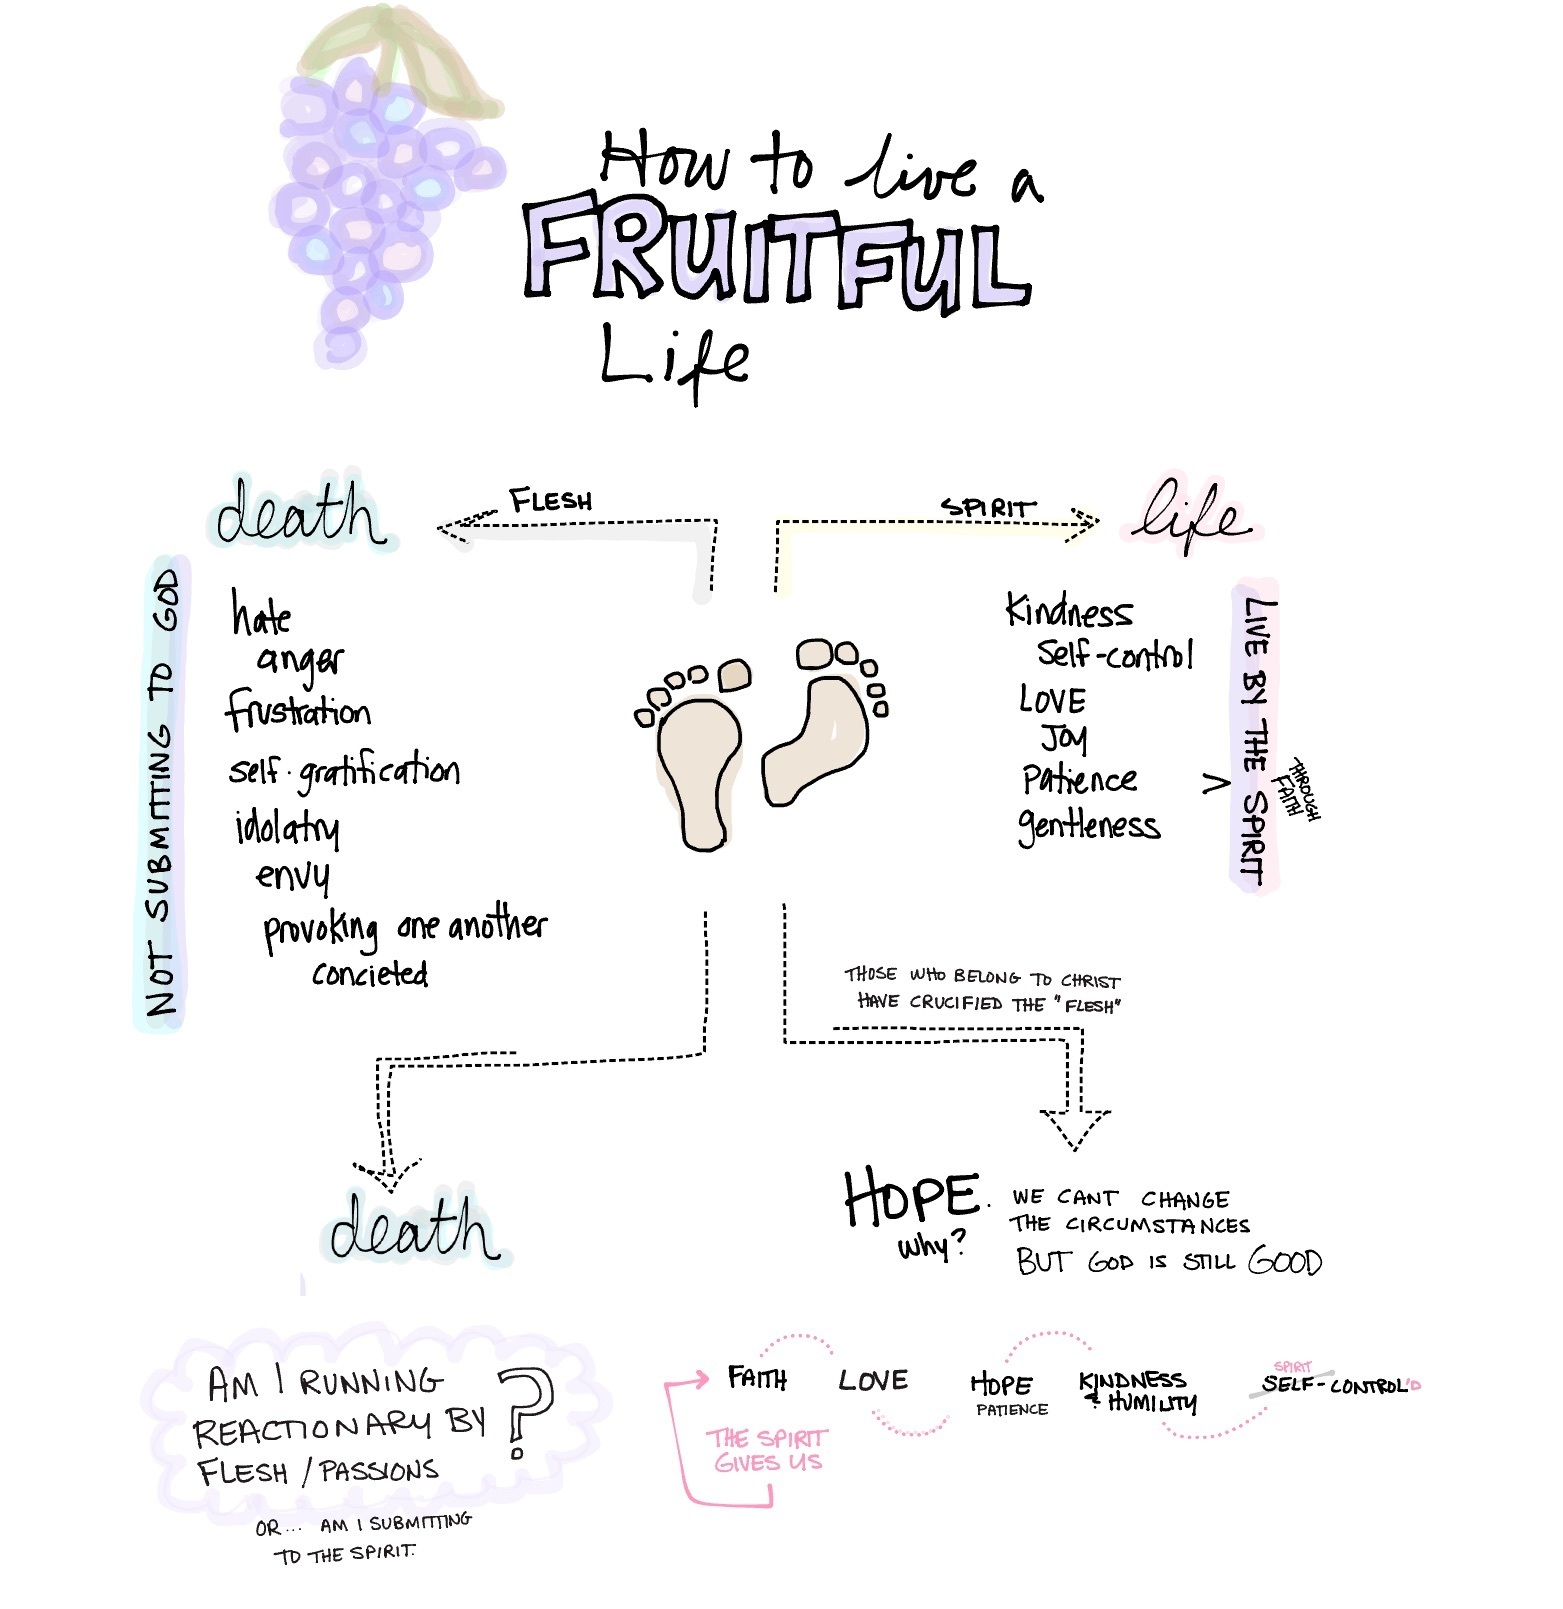 How to live a
FRUITFUL
Life
death
FLESH
SPIRIT
life
NOT SUBMITTING TO GOD
hate
anger
frustration
self-gratification
idolatry
envy
provoking one another
concieted
Kindness
Self-control
LOVE
Joy
Patience
gentleness
>
LIVE BY THE SPIRIT
THROUGH
FAITH
THOSE WHO BELONG TO CHRIST
HAVE CRUCIFIED THE "FLESH"
death
HOPE.
why?
WE CANT CHANGE
THE CIRCUMSTANCES
BUT GOD IS STILL GOOD
AM I RUNNING
REACTIONARY BY
FLESH / PASSIONS
?
OR... AM I SUBMITTING
TO THE SPIRIT.
FAITH
LOVE
HOPE
PATIENCE
KINDNESS
& HUMILITY
SPIRIT
SELF-CONTROL'D
THE SPIRIT
GIVES US